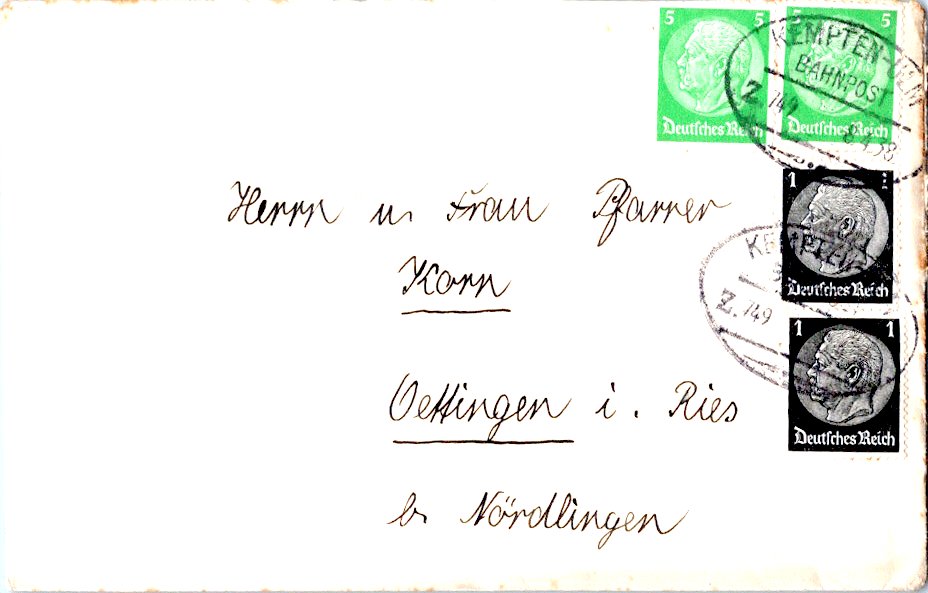 5 5
5
Deutsches Reich
Deutsches Reich
KEMPTEN-ULM
BAHNPOST
Z. 149
8.4.38
1
Deutsches Reich
Z. 149
1 1
Deutsches Reich
Herrn u. Frau Pfarrer
Korn
Oettingen i. Ries
b. Nördlingen